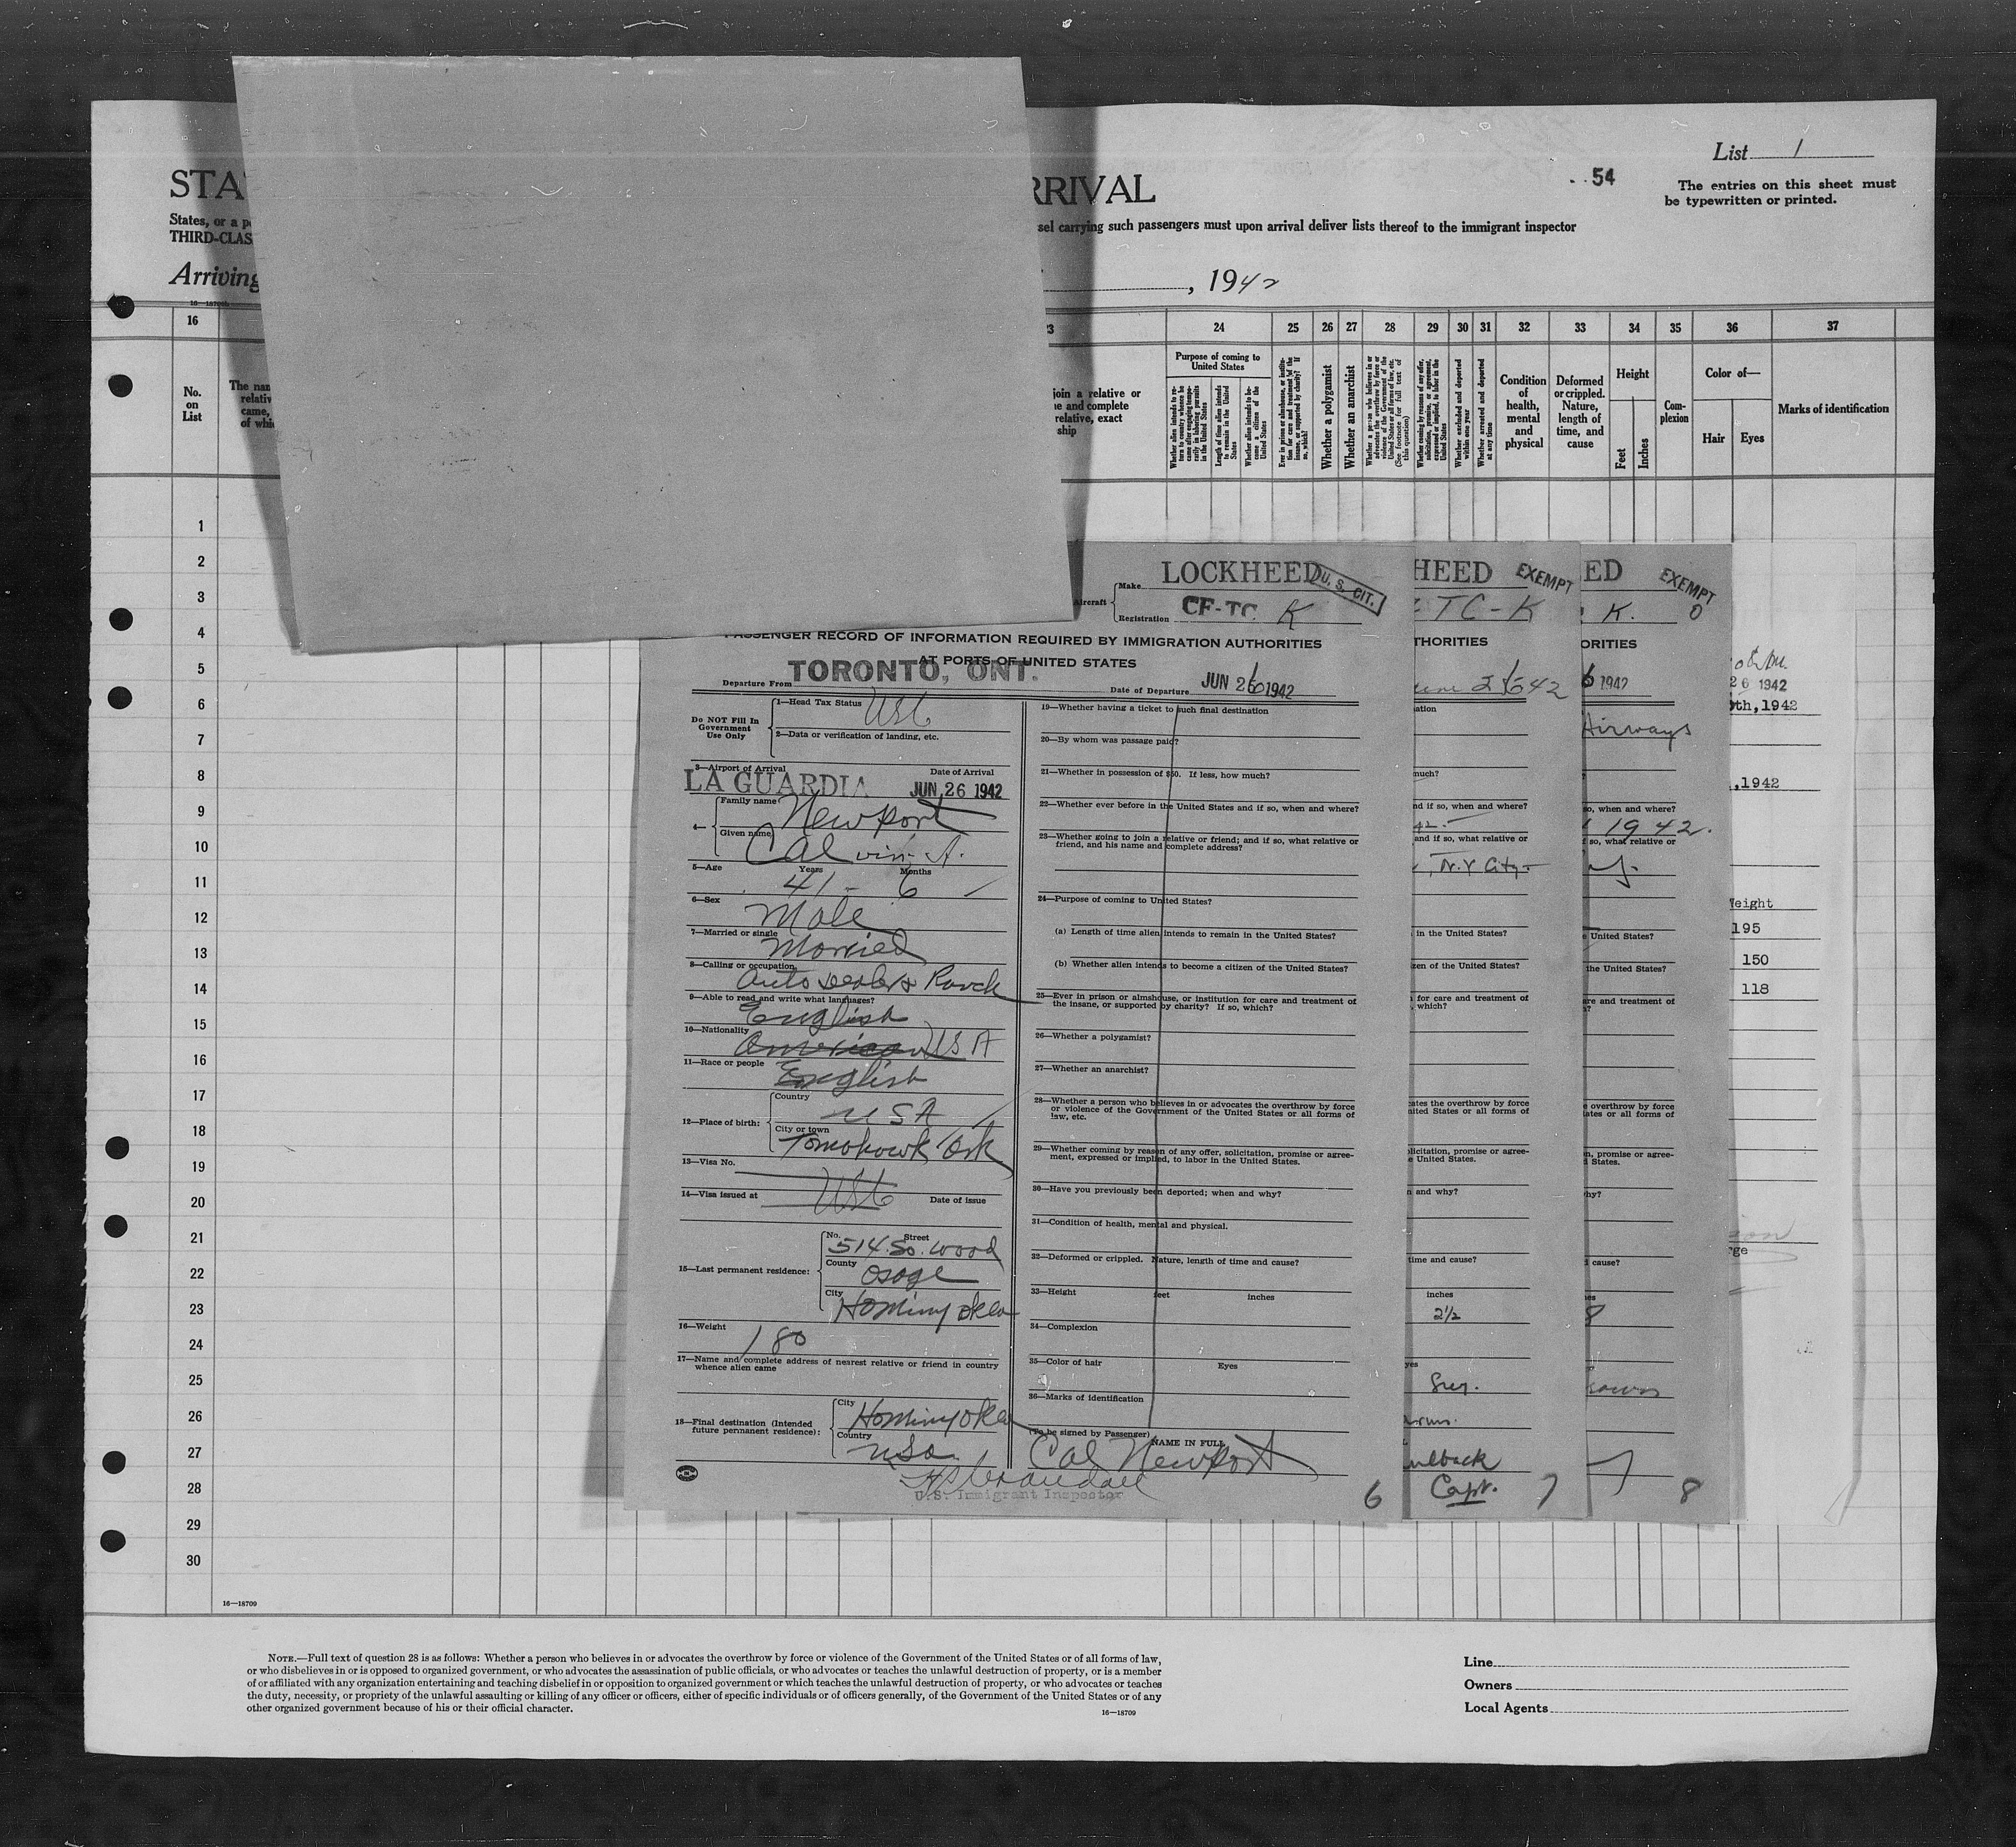 List 1
54
The entries on this sheet must
be typewritten or printed.
STA
RRIVAL
States, or a p
sel carrying such passengers must upon arrival deliver lists thereof to the immigrant inspector
THIRD-CLAS
Arriving
, 1942
16 24 25 26 27 28 29 30 31 32 33 34 35 36 37
No.
on
List
The nam
relativ
came,
of whi
join a relative or
e and complete
relative, exact
ship
Purpose of coming to
United States
Whether alien intends to return to country whence he came after engaging temporarily in laboring pursuits in the United States
Length of time alien intends to remain in the United States
Whether alien intends to become a citizen of the United States
Ever in prison or almshouse, or institution for care and treatment of the insane, or supported by charity? If so, which?
Whether a polygamist
Whether an anarchist
Whether a person who believes in or advocates the overthrow by force or violence of the Government of the United States or all forms of law, etc. (See footnote for full text of this question)
Whether coming by reason of any offer, solicitation, promise, or agreement, expressed or implied, to labor in the United States
Whether excluded and deported within one year
Whether arrested and deported at any time
Condition
of
health,
mental
and
physical
Deformed
or crippled.
Nature,
length of
time, and
cause
Height
Feet
Inches
Com-
plexion
Color of—
Hair
Eyes
Marks of identification
1
2
3
4
5
6
7
8
9
10
11
12
13
14
15
16
17
18
19
20
21
22
23
24
25
26
27
28
29
30
16—18709
Aircraft
Make LOCKHEED
U. S. CIT.
Registration CF-TC. K
PASSENGER RECORD OF INFORMATION REQUIRED BY IMMIGRATION AUTHORITIES
AT PORTS OF UNITED STATES
Departure From TORONTO, ONT.
Date of Departure JUN 26 1942
Do NOT Fill In
Government
Use Only
1—Head Tax Status USC
2—Data or verification of landing, etc.
3—Airport of Arrival LA GUARDIA
Date of Arrival JUN 26 1942
4— Family name Newport
Given name Calvin A.
5—Age Years 41 Months 6
6—Sex Male
7—Married or single Married
8—Calling or occupation Auto Dealer & Ranch
9—Able to read and write what languages? English
10—Nationality American USA
11—Race or people English
12—Place of birth: Country USA
City or town Tomohowk Ark
13—Visa No.
14—Visa issued at USC Date of issue
15—Last permanent residence: No. Street 514. So. Wood
County Osage
City Hominy Okla
16—Weight 180
17—Name and complete address of nearest relative or friend in country
whence alien came
18—Final destination (Intended
future permanent residence): City Hominy Okla
Country USA
U.S. Immigrant Inspector
19—Whether having a ticket to such final destination
20—By whom was passage paid?
21—Whether in possession of $50. If less, how much?
22—Whether ever before in the United States and if so, when and where?
23—Whether going to join a relative or friend; and if so, what relative or
friend, and his name and complete address?
24—Purpose of coming to United States?
(a) Length of time alien intends to remain in the United States?
(b) Whether alien intends to become a citizen of the United States?
25—Ever in prison or almshouse, or institution for care and treatment of
the insane, or supported by charity? If so, which?
26—Whether a polygamist?
27—Whether an anarchist?
28—Whether a person who believes in or advocates the overthrow by force
or violence of the Government of the United States or all forms of
law, etc.
29—Whether coming by reason of any offer, solicitation, promise or agree-
ment, expressed or implied, to labor in the United States.
30—Have you previously been deported; when and why?
31—Condition of health, mental and physical.
32—Deformed or crippled. Nature, length of time and cause?
33—Height feet inches
34—Complexion
35—Color of hair Eyes
36—Marks of identification
(To be signed by Passenger) NAME IN FULL
Cal Newport
6
HEED
EXEMPT
TC-K
THORITIES
2 6 42
ation
much?
nd if so, when and where?
42.
and if so, what relative or
, N.Y City.
in the United States?
zen of the United States?
for care and treatment of
which?
cates the overthrow by force
nited States or all forms of
licitation, promise or agree-
e United States.
n and why?
time and cause?
inches
2½
yes
Grey.
Capt.
7
ED
EXEMPT
0
K.
ORITIES
6 1942
Airways
so, when and where?
1942.
f so, what relative or
y.
e United States?
the United States?
are and treatment of
s?
e overthrow by force
ates or all forms of
n, promise or agree-
d States.
hy?
d cause?
hes
8
8
26 1942
0th, 1942
,1942
Weight
195
150
118
rge
NOTE.—Full text of question 28 is as follows: Whether a person who believes in or advocates the overthrow by force or violence of the Government of the United States or of all forms of law,
or who disbelieves in or is opposed to organized government, or who advocates the assassination of public officials, or who advocates or teaches the unlawful destruction of property, or is a member
of or affiliated with any organization entertaining and teaching disbelief in or opposition to organized government or which teaches the unlawful destruction of property, or who advocates or teaches
the duty, necessity, or propriety of the unlawful assaulting or killing of any officer or officers, either of specific individuals or of officers generally, of the Government of the United States or of any
other organized government because of his or their official character.
16—18709
Line
Owners
Local Agents